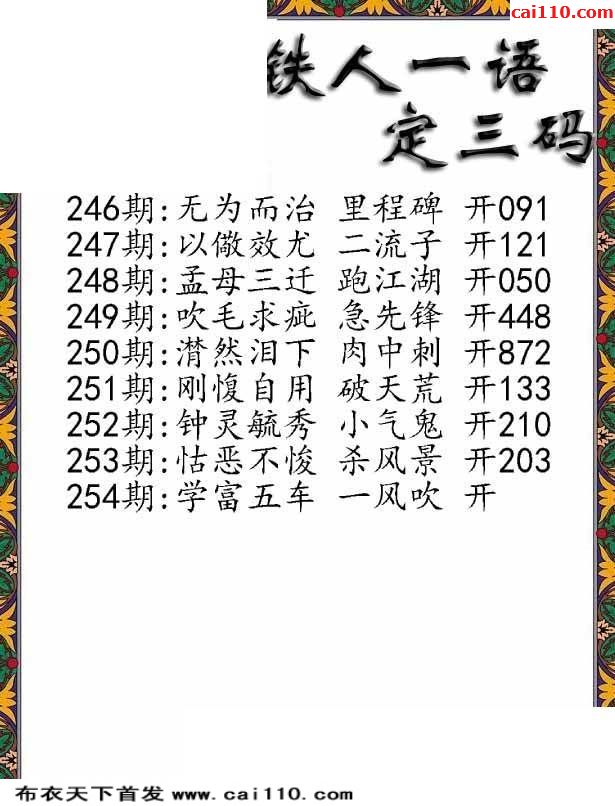 cai110.com
铁人一语
定三码
246期:无为而治 里程碑 开091
247期:以儆效尤 二流子 开121
248期:孟母三迁 跑江湖 开050
249期:吹毛求疵 急先锋 开448
250期:潸然泪下 肉中刺 开872
251期:刚愎自用 破天荒 开133
252期:钟灵毓秀 小气鬼 开210
253期:怙恶不悛 杀风景 开203
254期:学富五车 一风吹 开
布衣天下首发 www.cai110.com